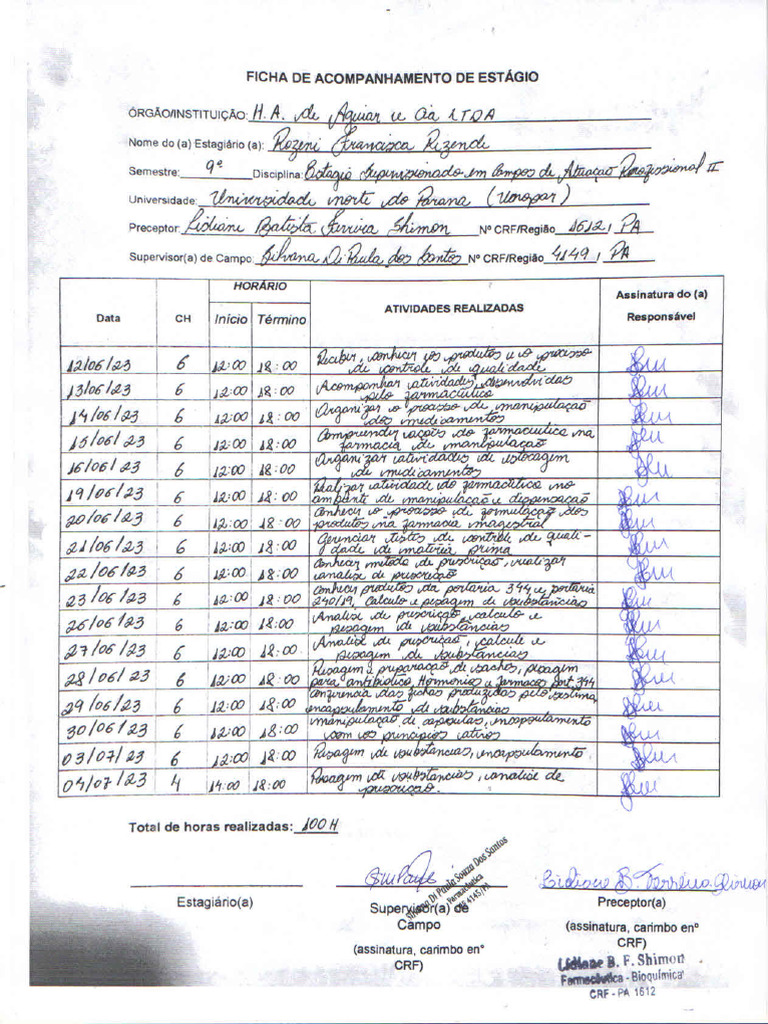 FICHA DE ACOMPANHAMENTO DE ESTÁGIO
ÓRGÃO/INSTITUIÇÃO: H.A. de Aguiar e Cia LTDA
Nome do (a) Estagiário (a): Rozeni Francisca Rezende
Semestre: 9º Disciplina: Estagio Supervisionado em Campos de Atuação Profissional II
Universidade: Universidade norte do Paraná (Unopar)
Preceptor: Lidiane Batista Ferreira Shimon Nº CRF/Região 1612, PA
Supervisor(a) de Campo: Silvana Di Paula dos Santos Nº CRF/Região 4149, PA
Data CH HORÁRIO Início Término ATIVIDADES REALIZADAS Assinatura do (a) Responsável
12/06/23 6 12:00 18:00 Receber, conhecer os produtos e o processo de controle de qualidade
13/06/23 6 12:00 18:00 Acompanhar atividades desenvolvidas pelo farmacêutico
14/06/23 6 12:00 18:00 Organizar o processo de manipulação dos medicamentos
15/06/23 6 12:00 18:00 Compreender ações do farmacêutico na farmacia de manipulação
16/06/23 6 12:00 18:00 Organizar atividades de estocagem de medicamentos
19/06/23 6 12:00 18:00 Realizar atividade do farmacêutico no ambiente de manipulação e dispensação
20/06/23 6 12:00 18:00 Conhecer o processo de formulação dos produtos na farmacia magistral
21/06/23 6 12:00 18:00 Gerenciar testes de controle de qualidade de materia prima
22/06/23 6 12:00 18:00 Conhecer metodo de prescrição, realizar analise de prescrição
23/06/23 6 12:00 18:00 Conhecer produtos da portaria 344, e portaria 240/19, Calculo e pesagem de substâncias
26/06/23 6 12:00 18:00 Analise de prescrição, calculo e pesagem de substâncias
27/06/23 6 12:00 18:00 Analise de prescrição, calculo e pesagem de substâncias
28/06/23 6 12:00 18:00 Pesagem e preparação de saches, pesagem para antibiotico, Hormonios e farmacos Port. 344
29/06/23 6 12:00 18:00 Conferencia das fichas produzidas pelo sistema, encapsulamento de substâncias
30/06/23 6 12:00 18:00 manipulação de capsulas, encapsulamento com os principios ativos
03/07/23 6 12:00 18:00 Pesagem de substâncias, encapsulamento.
04/07/23 4 14:00 18:00 Pesagem de substâncias, analise de prescrição.
Total de horas realizadas: 100H
Estagiário(a)
Silvana Di Paula Souza Dos Santos
Farmacêutica
Supervisor(a) de Campo
(assinatura, carimbo enº CRF)
Preceptor(a)
(assinatura, carimbo enº CRF)
Lidiane B. F. Shimon
Farmacêutica - Bioquímica
CRF - PA 1612